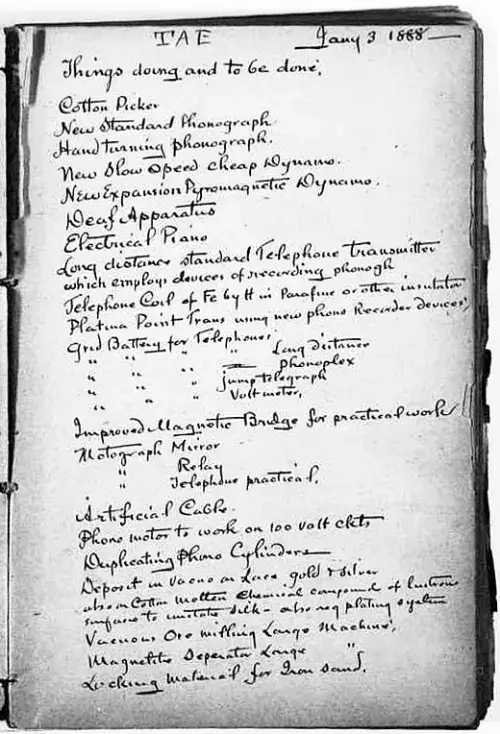 TAE Jany 3 1888
Things doing and to be done.
Cotton Picker
New Standard Phonograph
Hand turning phonograph.
New Slow Speed cheap Dynamo.
New Expansion Pyromagnetic Dynamo.
Deaf Apparatus
Electrical Piano
Long distance standard Telephone transmitter
which employs devices of recording phonogh
Telephone Coil of Fe by H in Parafine or other insulator
Platina Point Trans using new phono Recorder devices,
Grid Battery for Telephones,
" " " " Long distance
" " " Phonoplex
" " " jump telegraph
" " " Voltmeter,
Improved Magnetic Bridge for practical work
Motograph Mirror
" Relay
" Telephone practical.
Artificial Cable.
Phono motor to work on 100 volt ckts
Duplicating Phono Cylinders
Deposit in vacuo on Lace gold & silver
also on Cotton molten chemical compound of lustrous
surface to imitate silk - also reg plating system
Vacuous Ore milling Large Machine,
Magnetic Seperator Large "
Locking material for Iron sand.